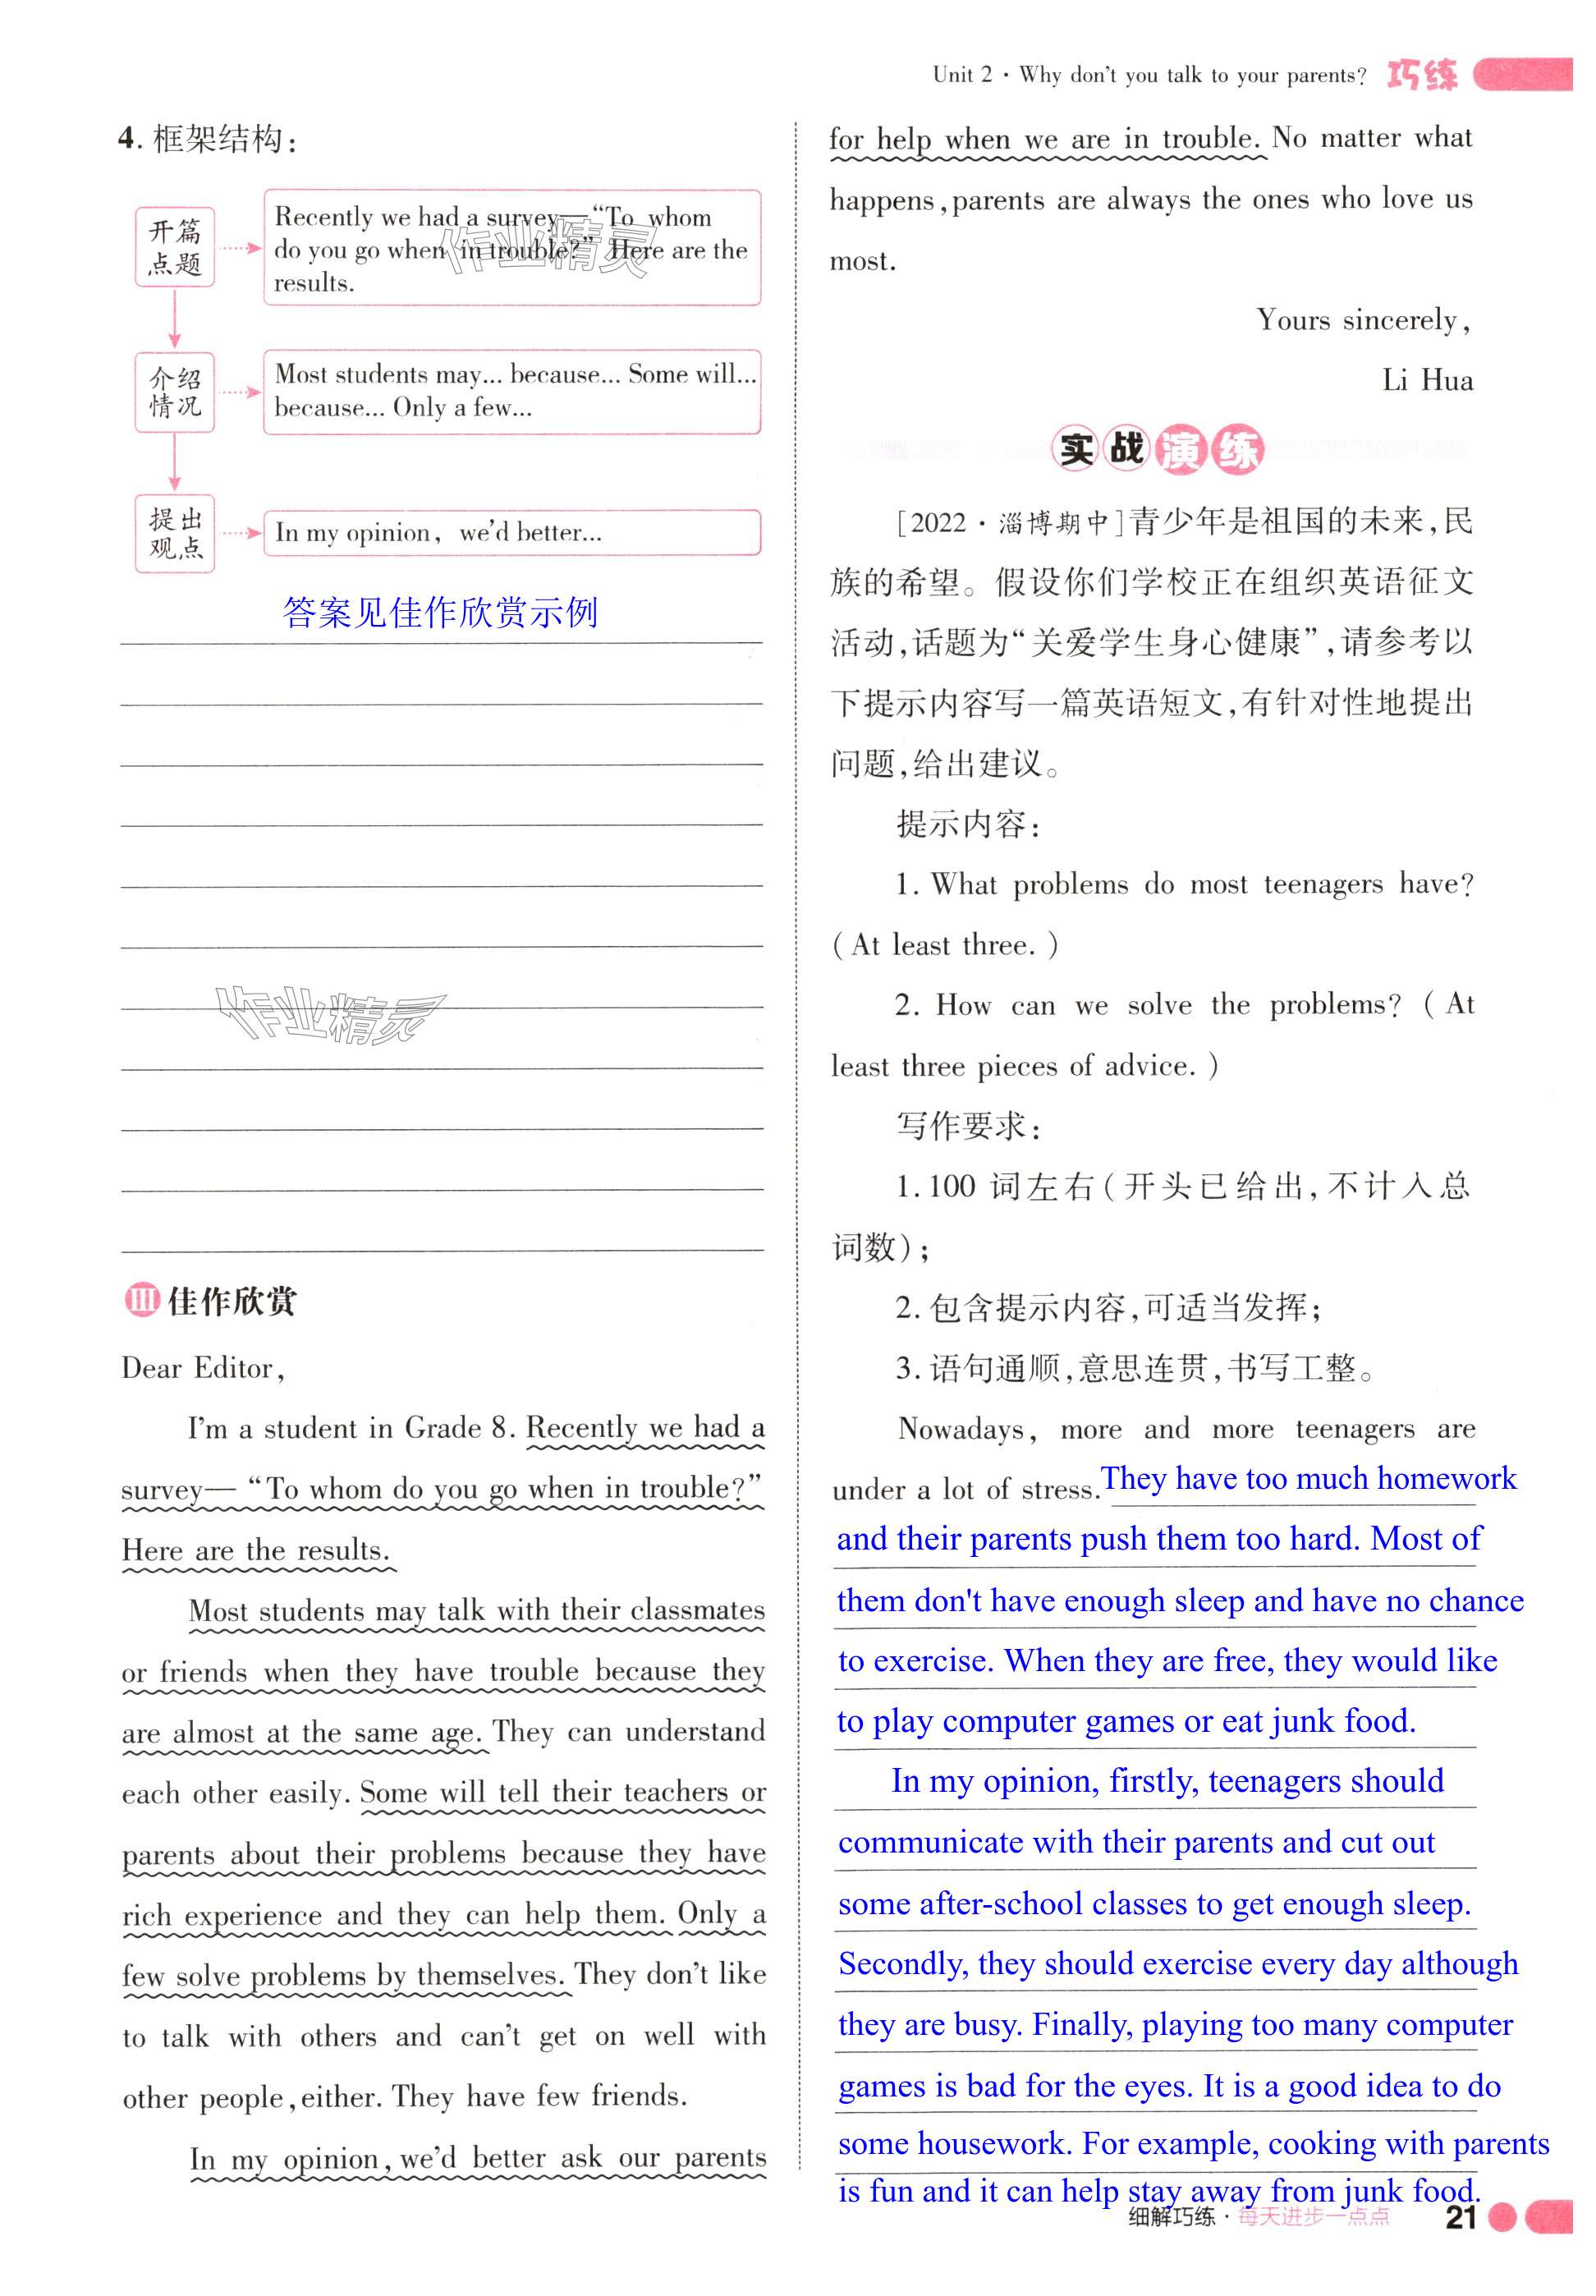 Unit 2 · Why don't you talk to your parents? 巧练
4. 框架结构：
开篇
点题
Recently we had a survey—“To whom
do you go when in trouble?” Here are the
results.
介绍
情况
Most students may... because... Some will...
because... Only a few...
提出
观点
In my opinion, we'd better...
答案见佳作欣赏示例
作业精灵
作业精灵
Ⅲ 佳作欣赏
Dear Editor,
I'm a student in Grade 8. Recently we had a
survey— “To whom do you go when in trouble?”
Here are the results.
Most students may talk with their classmates
or friends when they have trouble because they
are almost at the same age. They can understand
each other easily. Some will tell their teachers or
parents about their problems because they have
rich experience and they can help them. Only a
few solve problems by themselves. They don't like
to talk with others and can't get on well with
other people, either. They have few friends.
In my opinion, we'd better ask our parents
for help when we are in trouble. No matter what
happens, parents are always the ones who love us
most.
Yours sincerely,
Li Hua
实战演练
[2022·淄博期中]青少年是祖国的未来,民
族的希望。假设你们学校正在组织英语征文
活动,话题为“关爱学生身心健康”,请参考以
下提示内容写一篇英语短文,有针对性地提出
问题,给出建议。
提示内容：
1. What problems do most teenagers have?
(At least three.)
2. How can we solve the problems? (At
least three pieces of advice.)
写作要求：
1.100 词左右(开头已给出,不计入总
词数);
2.包含提示内容,可适当发挥;
3.语句通顺,意思连贯,书写工整。
Nowadays, more and more teenagers are
under a lot of stress. They have too much homework
and their parents push them too hard. Most of
them don't have enough sleep and have no chance
to exercise. When they are free, they would like
to play computer games or eat junk food.
In my opinion, firstly, teenagers should
communicate with their parents and cut out
some after-school classes to get enough sleep.
Secondly, they should exercise every day although
they are busy. Finally, playing too many computer
games is bad for the eyes. It is a good idea to do
some housework. For example, cooking with parents
is fun and it can help stay away from junk food.
细解巧练·每天进步一点点 21